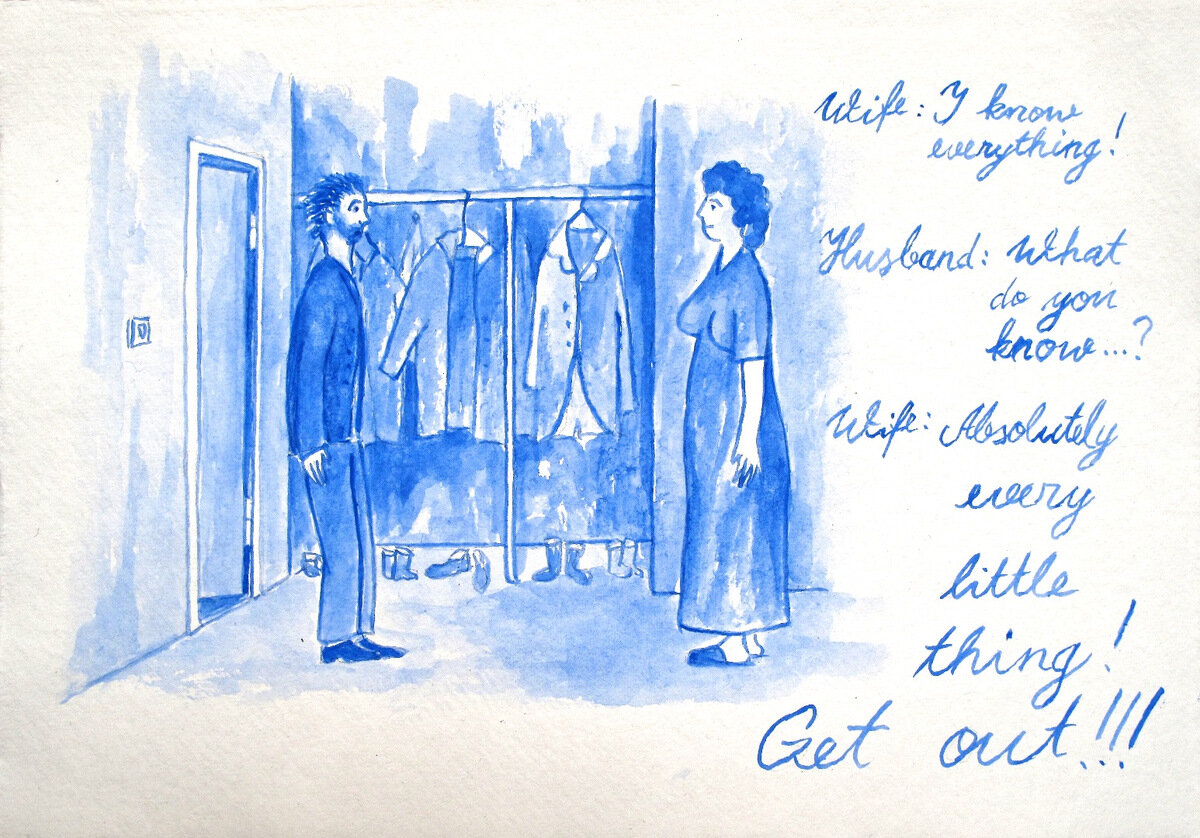 Wife: I know
everything!
Husband: What
do you
know...?
Wife: Absolutely
every
little
thing!
Get out!!!